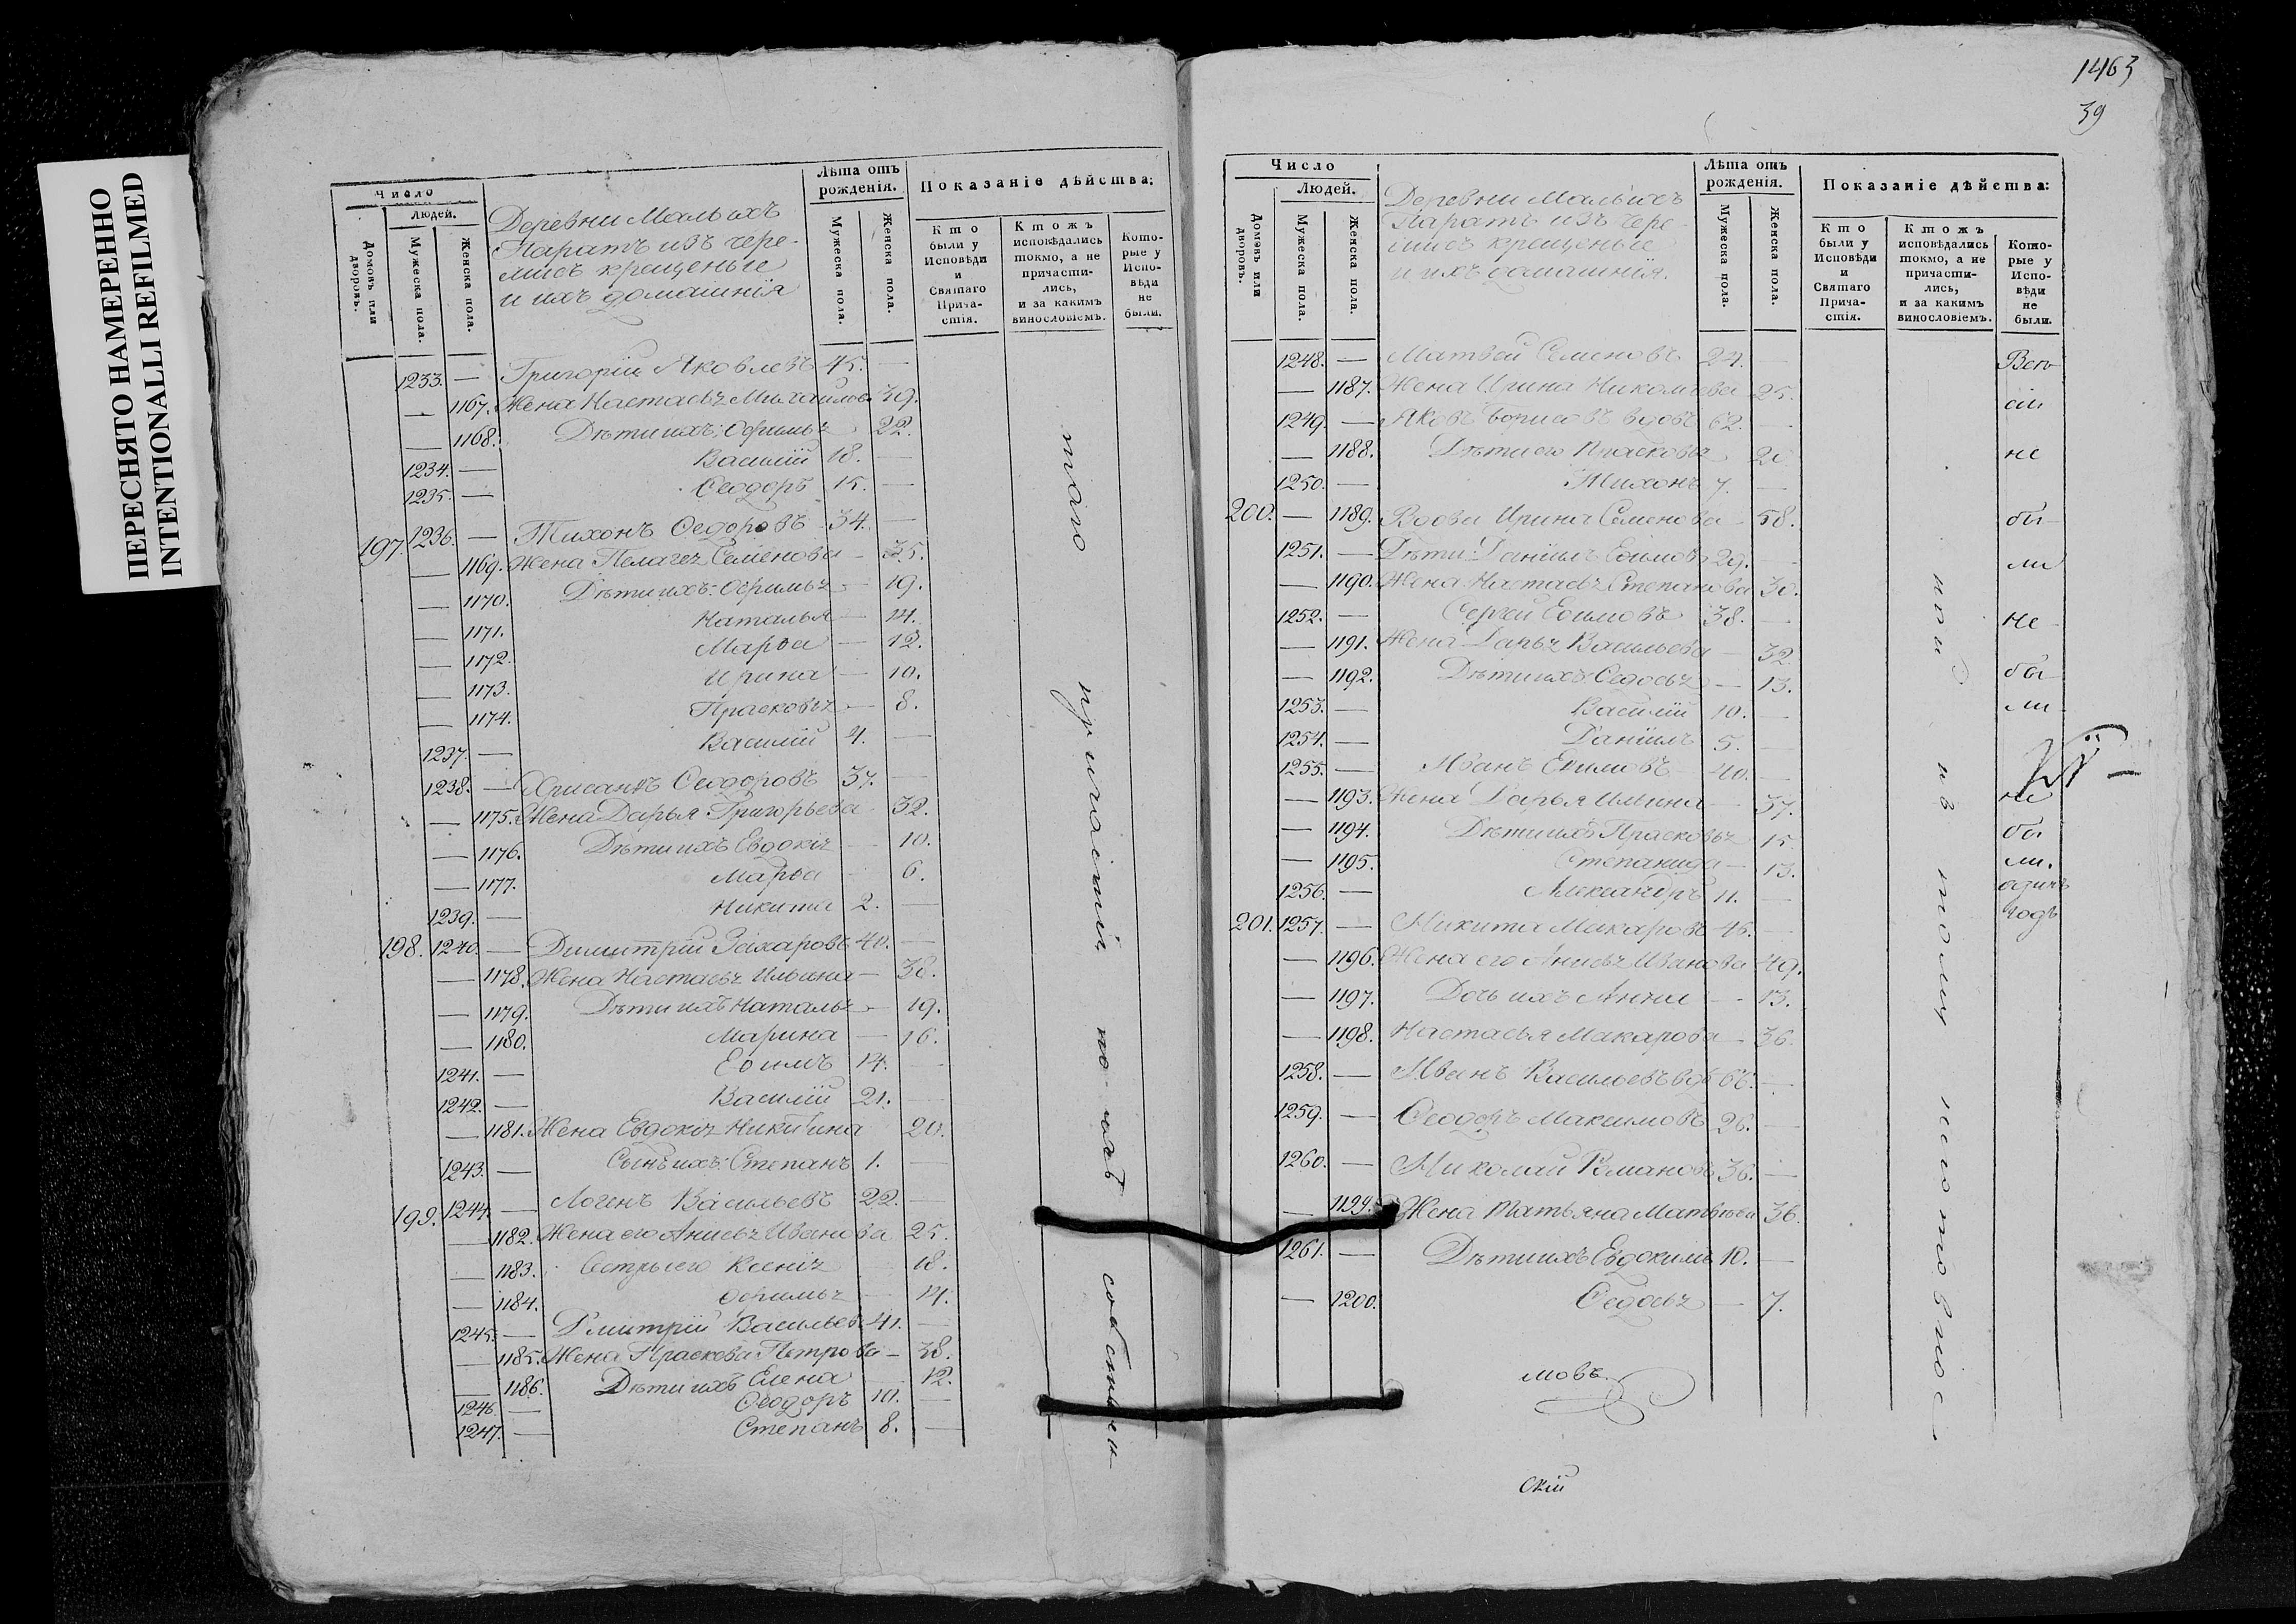 ПЕРЕСНЯТО НАМЕРЕННО
INTENTIONALLI REFILMED
Число
Людей.
Домовъ или дворовъ.
Мужеска пола.
Женска пола.
Деревни Малыхъ
Паратъ изъ чере-
мисъ крещеные
и ихъ домашнія
Лѣта отъ рожденія.
Мужеска пола.
Женска пола.
Показаніе дѣйства:
Кто были у Исповѣди и Святаго Прича-стія.
Ктожъ исповѣдались токмо, а не причасти-лись, и за какимъ винословіемъ.
Кото-рые у Испо-вѣди не были.
1233. — Григорій Яковлевъ 45. —
— 1167. Жена Настасья Михайлова 39.
— 1168. Дѣти ихъ: Ѳфимья 22.
1234. — Василій 18. —
1235. — Ѳеодоръ 15. —
197. 1236. — Тихонъ Ѳедоровъ 34. —
— 1169. Жена Пелагея Семенова — 35.
— 1170. Дѣти ихъ: Ѳфимья — 19.
— 1171. Наталья — 14.
— 1172. Марѳа — 12.
— 1173. Ирина — 10.
— 1174. Прасковья — 8.
1237. — Василій 4. —
1238. — Хрисанѳъ Ѳеодоровъ 37. —
— 1175. Жена Дарья Григорьева 32.
— 1176. Дѣти ихъ Евдокія — 10.
— 1177. Марѳа — 6.
1239. — Никита 2. —
198. 1240. — Димитрій Захаровъ 40. —
— 1178. Жена Настасья Ильина — 38.
— 1179. Дѣти ихъ Наталья — 19.
— 1180. Марина — 16.
1241. — Ефимъ 14. —
1242. — Василій 21. —
— 1181. Жена Евдокія Никитина 20.
1243. — Сынъ ихъ: Степанъ 1. —
199. 1244. — Логинъ Васильевъ 22. —
— 1182. Жена его Анисья Иванова 25.
— 1183. Сестры его Ксенія 18.
— 1184. Ѳфимья — 14.
1245. — Дмитрій Васильевъ 41. —
— 1185. Жена Прасковья Петрова — 38.
— 1186. Дѣти ихъ Елена — 12.
1246. — Ѳеодоръ 10. —
1247. — Степанъ 8. —
того
по ихъ
1463
39
Число
Людей.
Домовъ или дворовъ.
Мужеска пола.
Женска пола.
Деревни Малыхъ
Паратъ изъ чере-
мисъ крещеные
и ихъ домашнія.
Лѣта отъ рожденія.
Мужеска пола.
Женска пола.
Показаніе дѣйства:
Кто были у Исповѣди и Святаго Прича-стія.
Ктожъ исповѣдались токмо, а не причасти-лись, и за какимъ винословіемъ.
Кото-рые у Испо-вѣди не были.
1248. — Матвѣй Семеновъ 24. —
— 1187. Жена Ирина Николаева 25.
1249. — Яковъ Борисовъ вдовъ 62. —
— 1188. Дѣти его Прасковья 20
1250. — Тихонъ 7. —
200. — 1189. Вдова Ирина Семенова — 58.
1251. — Дѣти: Даніилъ Ефимовъ 29. —
— 1190. Жена Настасья Степанова 30.
1252. — Сергѣй Ефимовъ 38. —
— 1191. Жена Дарья Васильева — 32
— 1192. Дѣти ихъ: Ѳедосья — 13.
1253. — Василій 10. —
1254. — Даніилъ 5. —
1255. — Иванъ Ефимовъ 40. —
— 1193. Жена Дарья Ильина — 37.
— 1194. Дѣти ихъ Прасковья 15
— 1195. Степанида — 13.
1256. — Александръ 11. —
201. 1257. — Никита Макаровъ 46. —
— 1196. Жена его Анисья Иванова 49.
— 1197. Дочь ихъ Анна — 13.
— 1198. Настасья Макарова — 36.
1258. — Иванъ Васильевъ вдъ 66. —
1259. — Ѳеодоръ Максимовъ 26. —
1260. — Николай Романовъ 36. —
— 1199. Жена Татьяна Матвѣева 36.
1261. — Дѣти ихъ Евдокимъ 10. —
— 1200. Ѳедосья — 7.
не
бы
ли
не
бы
ли
не
бы
ли.
одинъ
годъ
мовъ
скій